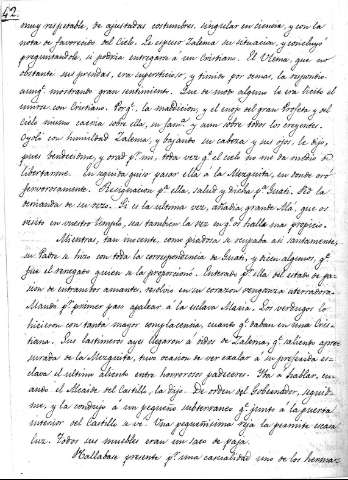 42.
muy respetable, de ajustadas costumbres, singular en ciencia, y con la
nota de favorecido del Cielo. Le espuso Zalema su situacion, y concluyó
preguntandole, si podria entregarse á un Cristiano. El Ulema, que no
obstante sus prendas, era supersticioso, y tímido por demas, la respondio
aunq.e mostrando gran sentimiento. Que de modo alguno le era lícito el
unirse con Cristiano. Porq.e la maldicion, y el enojo del gran Profeta y del
Cielo mismo caeria sobre ella, su fam.a y aun sobre todos los creyentes.
Oyólo con humildad Zalema, y bajando su cabeza y sus ojos, le dijo,
pues bendecidme, y orad p.r mi, toda vez q.e el Cielo no me da medio de
libertarme. En seguida quiso pasar ella á la Mezquita, en donde oró
fervorosamente. Resignacion p.a ella, salud y dicha p.a Guati. Fué la
demanda de su rezo. Si es la ultima vez, añadia, grande Alá, que os
visito en vuestro templo, sea tambien la vez en q.e os halle mas propicio.
Mientras, tan inocente, como piadosa se ocupaba asi santamente,
su Padre se hizo con toda la correspondencia de Guati, y dicen algunos, q.e
fue el renegado quien se la proporcionó. Enterado p.r ella del estado de pa-
sion de entrambos amantes, resolvió en su corazon venganza aterradora.
Mandó p.r primer paso apalear á la esclava Maria. Los verdugos lo
hicieron con tanta mayor complacencia, cuanto q.e daban en una Cris-
tiana. Sus lastimeros ayes llegaron á oidos de Zalema, q.e saliendo apre-
surada de la Mezquita, tuvo ocasion de ver exalar á su preciada es-
clava el ultimo aliento entre horrorosos padeceres. Iba á hablar, cu-
ando el Alcaide del Castillo, la dijo. De orden del Gobernador, seguid-
me, y la condujo á un pequeño subterraneo q.e junto á la puerta
interior del Castillo se vé. Una pequeñisima reja la permite escasa
luz. Todos sus muebles eran un saco de paja.
Hallabase presente p.r una casualidad uno de los herma-